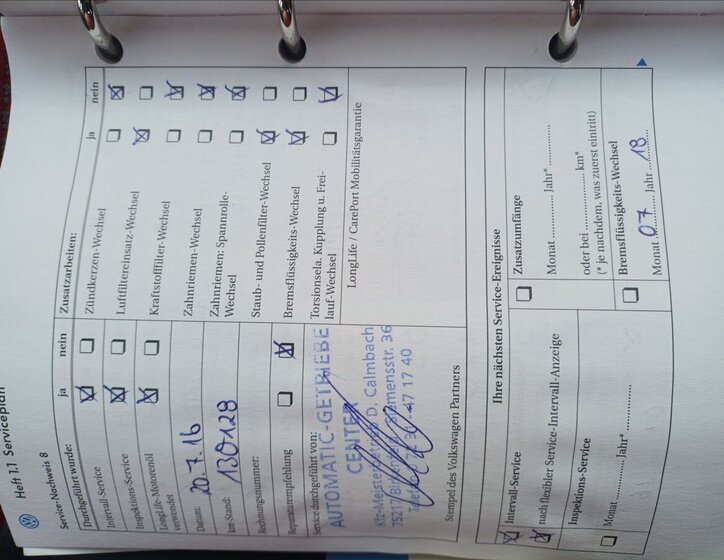 Heft 1.1 Serviceplan
Service-Nachweis 8
Durchgeführt wurde: ja nein
Intervall-Service
Inspektions-Service
LongLife-Motorenöl
verwendet
Datum: 20.7.16
km-Stand: 130128
Rechnungsnummer:
Reparaturempfehlung
Service durchgeführt von:
AUTOMATIC-GETRIEBE
CENTER
Kfz-Meisterbetrieb D. Calmbach
Siemensstr. 36
47 17 40
Stempel des Volkswagen Partners
Zusatzarbeiten: ja nein
Zündkerzen-Wechsel
Luftfiltereinsatz-Wechsel
Kraftstofffilter-Wechsel
Zahnriemen-Wechsel
Zahnriemen: Spannrolle-
Wechsel
Staub- und Pollenfilter-Wechsel
Bremsflüssigkeits-Wechsel
Torsionsela. Kupplung u. Frei-
lauf-Wechsel
LongLife / CarePort Mobilitätsgarantie
Ihre nächsten Service-Ereignisse
Intervall-Service
nach flexibler Service-Intervall-Anzeige
Inspektions-Service
Monat .............. Jahr* ..............
Zusatzumfänge
Monat .............. Jahr* ..............
oder bei .................... km*
(* je nachdem, was zuerst eintritt)
Bremsflüssigkeits-Wechsel
Monat 07 Jahr 18